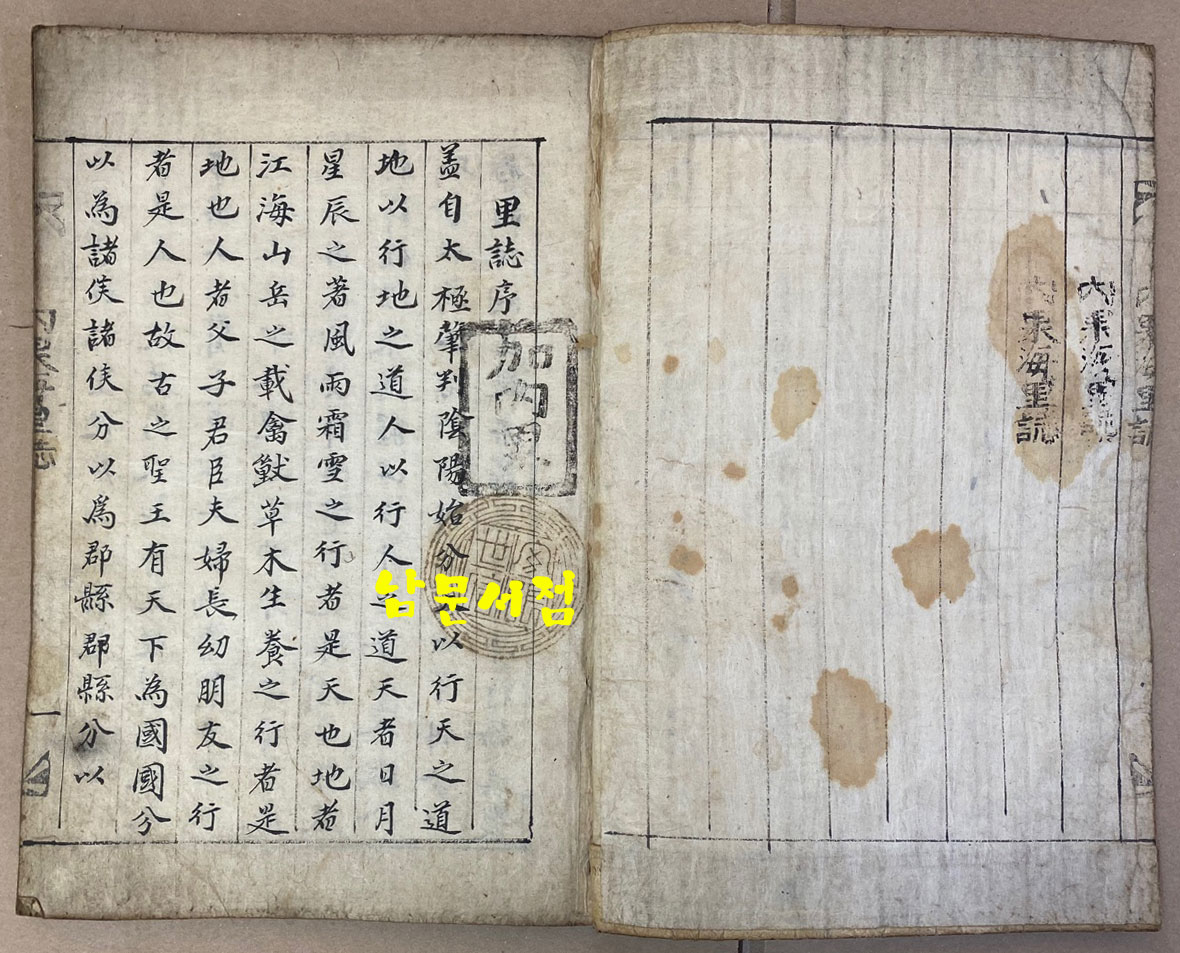 海里誌
海里誌
里誌序
盖自太極肇判陰陽始分天以行天之道
地以行地之道人以行人之道天者日月
星辰之著風雨霜雪之行者是天也地者
江海山岳之載禽獸草木生養之行者是
地也人者父子君臣夫婦長幼朋友之行
者是人也故古之聖王有天下為國國分
以為諸侯諸侯分以爲郡縣郡縣分以
一
남문서점